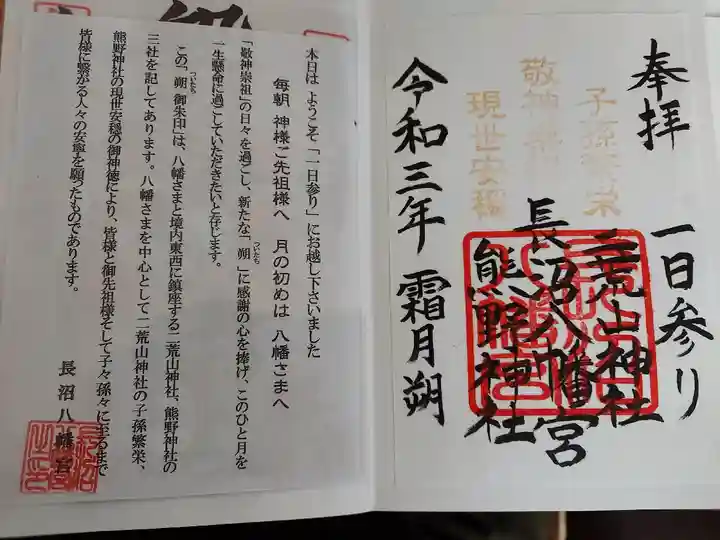 奉拝
一日参り
子孫繁栄
二荒山神社
敬神崇祖
長沼八幡宮
現世安穏
熊野神社
令和三年 霜月朔
本日は ようこそ「一日参り」にお越し下さいました
毎朝 神様ご先祖様へ 月の初めは 八幡さまへ
「敬神崇祖」の日々を過ごし、新たな「朔ついたち」に感謝の心を捧げ、このひと月を
一生懸命に過ごしていただきたいと存じます。
この「朔ついたち 御朱印」は、八幡さまと境内東西に鎮座する二荒山神社、熊野神社の
三社を記してあります。八幡さまを中心として二荒山神社の子孫繁栄、
熊野神社の現世安穏の御神徳により、皆様と御先祖様そして子々孫々に至るまで
皆様に繋がる人々の安寧を願ったものであります。
長沼八幡宮